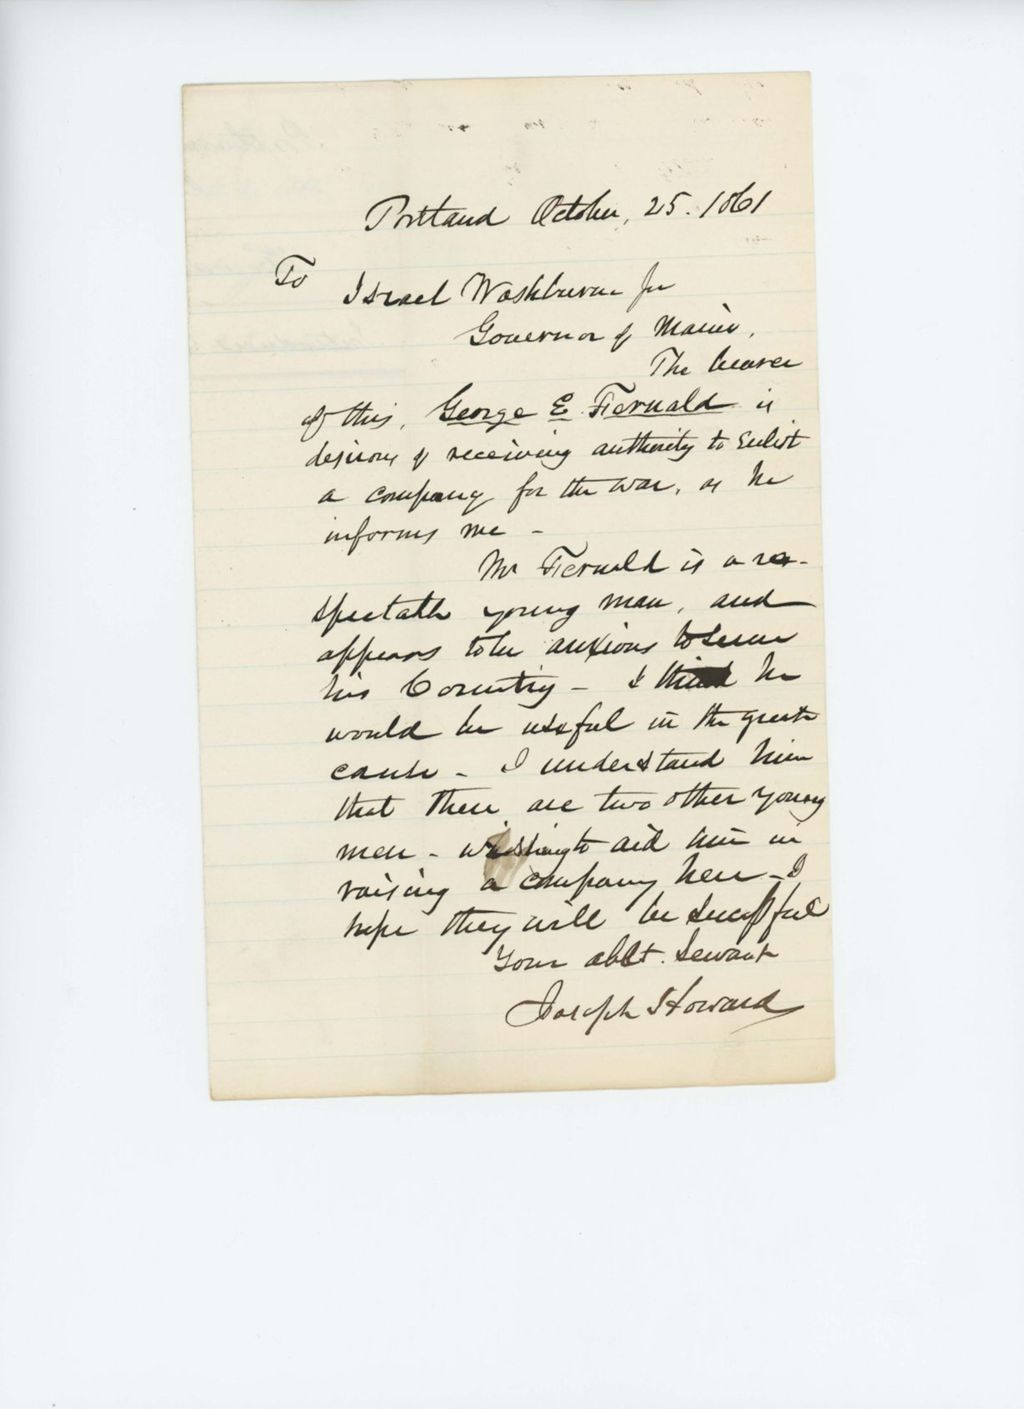 Portland October, 25. 1861
To Israel Washburne Jr
Governor of Maine.
The bearer
of this, George E. Fernald is
desirous of receiving authority to enlist
a company for the war, as he
informs me -
Mr Fernald is a re-
spectable young man, and
appears to be anxious to serve
his Country - I think he
would be useful in the great
cause - I understand him
that there are two other young
men - wishing to aid him in
raising a company here - I
hope they will be successful
Your obt. servant
Joseph Howard